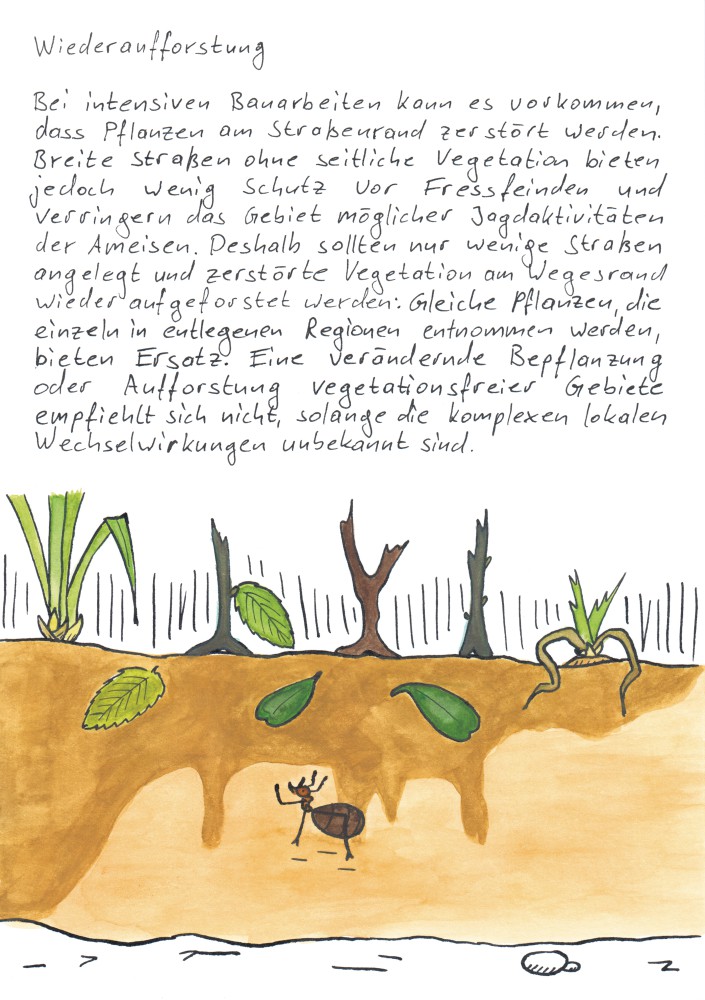 Wiederaufforstung
Bei intensiven Bauarbeiten kann es vorkommen,
dass Pflanzen am Straßenrand zerstört werden.
Breite Straßen ohne seitliche Vegetation bieten
jedoch wenig Schutz vor Fressfeinden und
verringern das Gebiet möglicher Jagdaktivitäten
der Ameisen. Deshalb sollten nur wenige Straßen
angelegt und zerstörte Vegetation am Wegesrand
wieder aufgeforstet werden: Gleiche Pflanzen, die
einzeln in entlegenen Regionen entnommen werden,
bieten Ersatz. Eine verändernde Bepflanzung
oder Aufforstung vegetationsfreier Gebiete
empfiehlt sich nicht, solange die komplexen lokalen
Wechselwirkungen unbekannt sind.